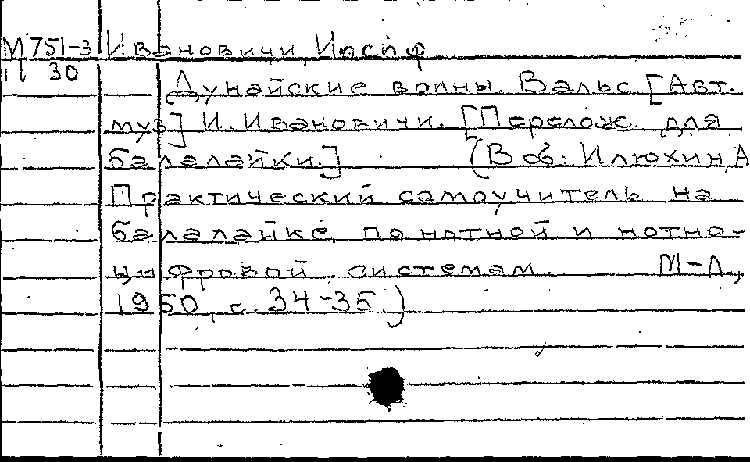 М751-3 Ивановичи, Иосиф
11 30
Дунайские волны. Вальс [Авт.
муз] И. Ивановичи. [Перелож. для
балалайки.] (В сб: Илюхин, А
Практический самоучитель на
балалайке по нотной и нотно-
цифровой системам. М-Л,
1950, с. 34-35.)